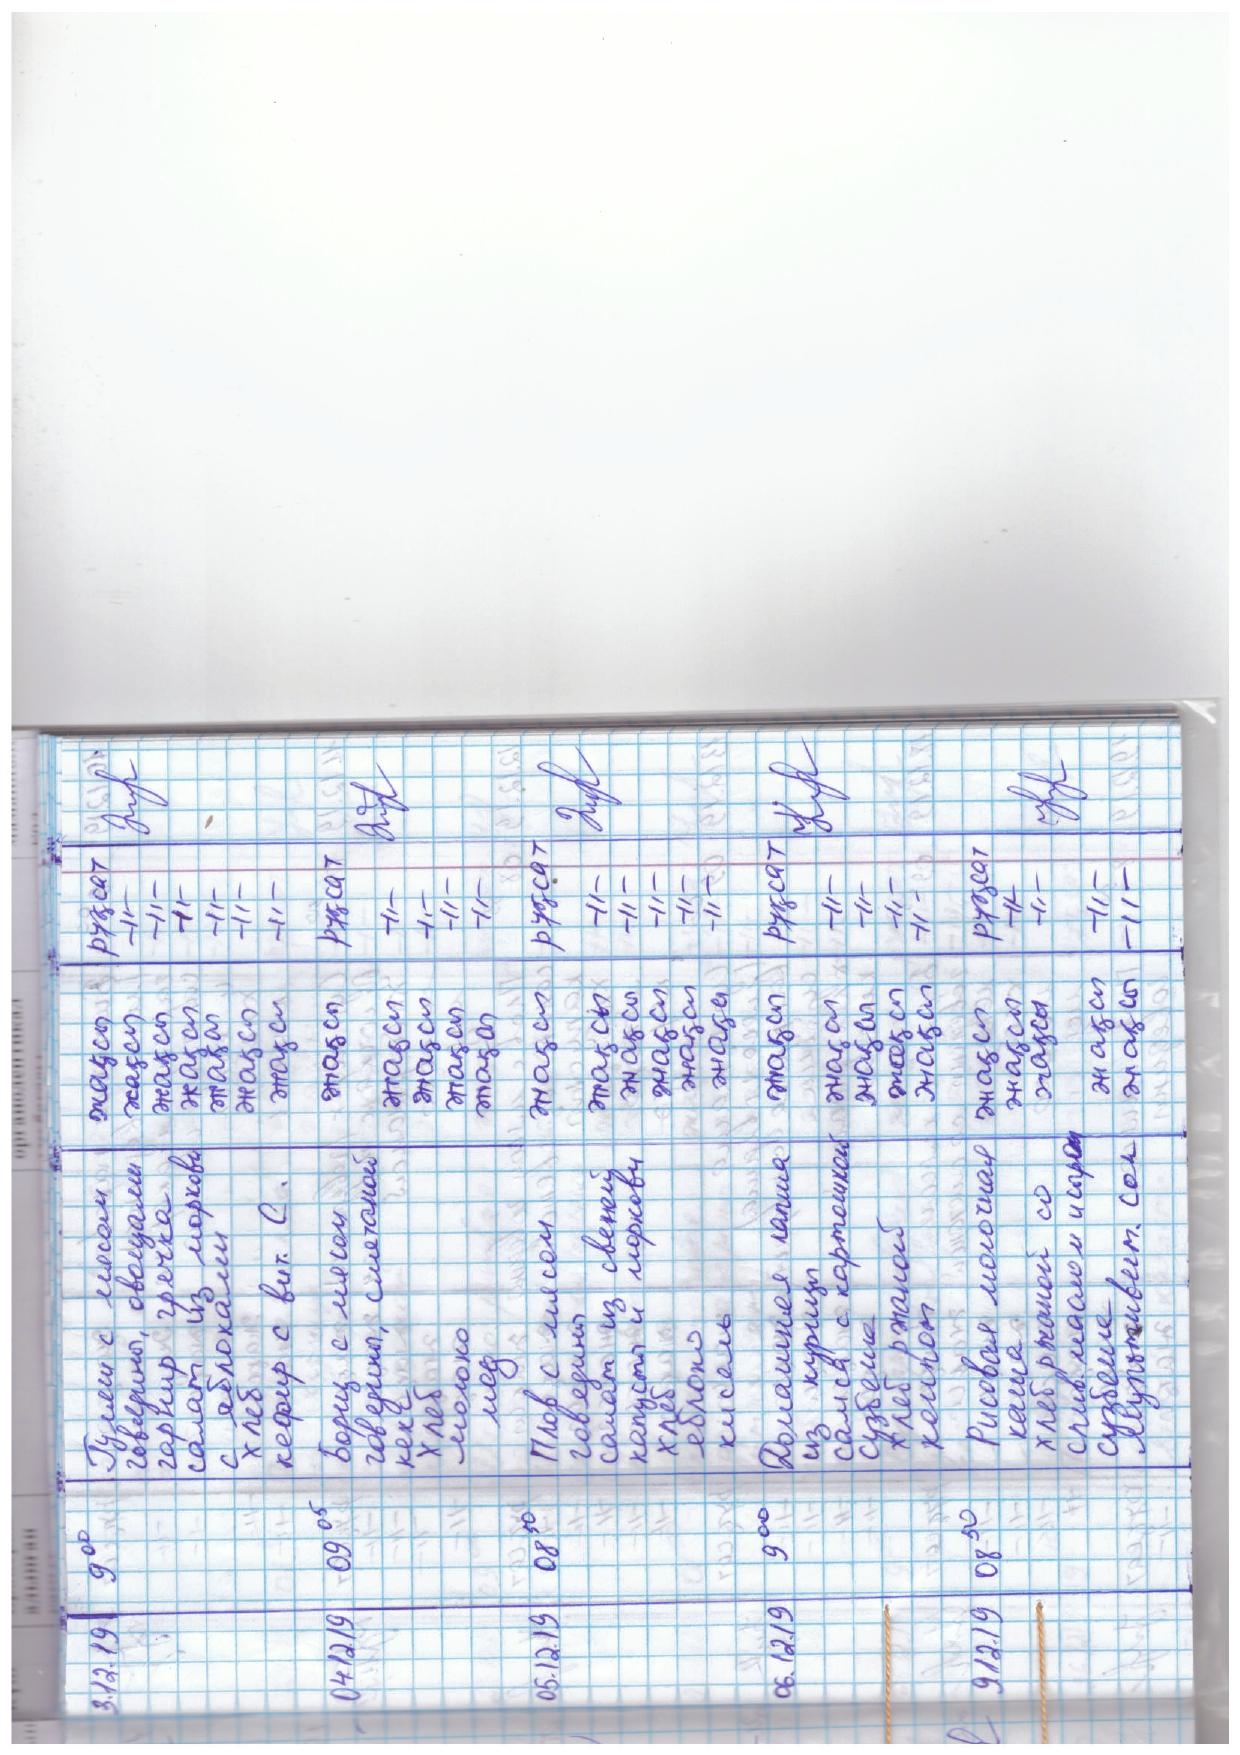 3.12.19 9 00 Гуляш с мясом жақсы рұқсат
говядины, овощами жақсы -//-
гарнир гречка жақсы -//-
салат из моркови жақсы -//-
с яблоками жақсы -//-
хлеб жақсы -//-
кефир с вит. С. жақсы -//-
04.12.19 09 05 Борщ с мясом жақсы рұқсат
говядины, сметаной жақсы -//-
кекс жақсы -//-
хлеб жақсы -//-
молоко жақсы -//-
мёд
05.12.19 08 50 Плов с мясом жақсы рұқсат
говядины
салат из свежей жақсы -//-
капусты и моркови жақсы -//-
хлеб жақсы -//-
яблоко жақсы -//-
кисель жақсы -//-
06.12.19 9 00 Домашняя лапша жақсы рұқсат
из курицы
самса с картошкой жақсы -//-
сузбеше жақсы -//-
хлеб ржаной жақсы -//-
компот жақсы -//-
9.12.19 08 50 Рисовая молочная жақсы рұқсат
каша жақсы -//-
хлеб ржаной со жақсы -//-
слив. маслом и сыром
сузбеше жақсы -//-
Мультивит. сок жақсы -//-